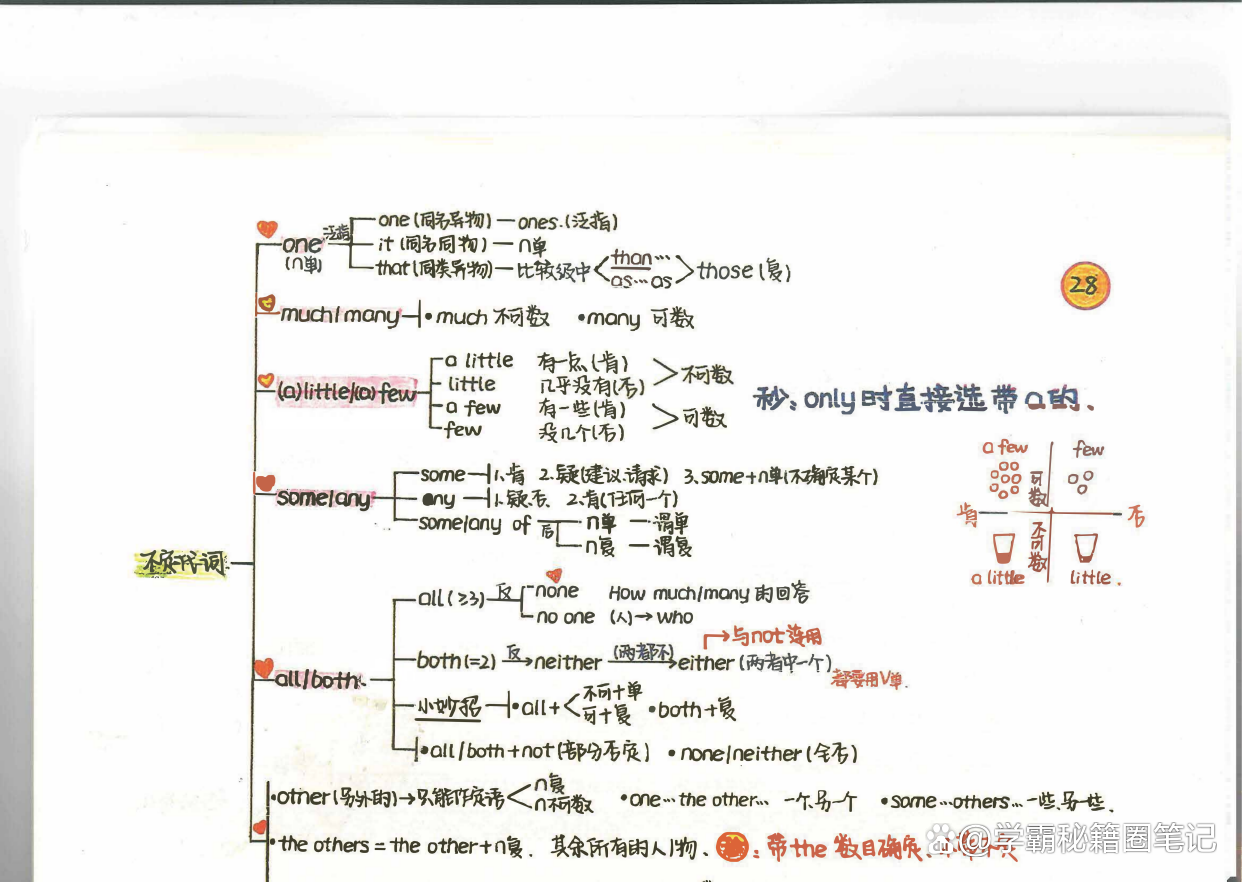 one(同名异物)—ones.(泛指)
one 泛指
(n单)
it(同名同物)—n单
that(同类异物)—比较级中 than… as…as those(复)
28
much/many •much 不可数 •many 可数
(a)little/(a)few
a little 有一点(肯)
little 几乎没有(否)
不可数
a few 有一些(肯)
few 没几个(否)
可数
秒:only时直接选带a的.
a few few
可数
肯 否
不可数
a little little.
some/any
some 1.肯 2.疑(建议.请求) 3.some+n单(不确定某个)
any 1.疑.否 2.肯(任何一个)
some/any of 后 n单 — 谓单
n复 — 谓复
不定代词
all/both
all(≥3) 反 none How much/many的回答
no one (人)→who
与not连用
both(=2) 反 neither (两者都不) either(两者中一个)
都要用V单.
小妙招 •all+ 不可+单 可+复 •both+复
•all/both+not(部分否定) •none/neither(全否)
•other(另外的)→只能作定语 n复 n不可数 •one…the other… 一个.另一个 •some…others…一些.另一些.
•the others=the other+n复. 其余所有的人/物、 :带the 数目确定、
@学霸秘籍圈笔记